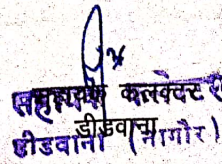 सहायक कलक्टर ए
डीडवाना
डीडवाना (नागौर)